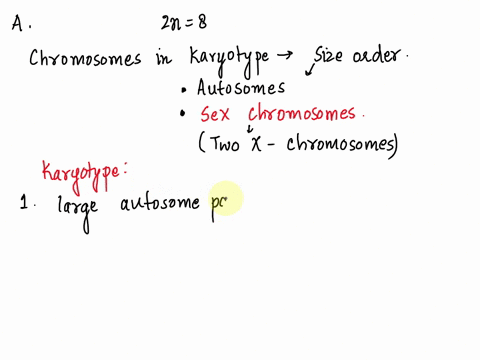 A. 2n = 8
Chromosomes in Karyotype → Size order.
• Autosomes
• Sex chromosomes.
(Two X - chromosomes)
Karyotype:
1. large autosome pc